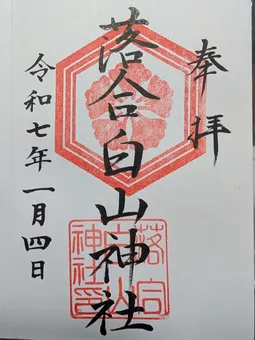 奉拝
落合白山神社
令和七年一月四日
落合
白山
神社印